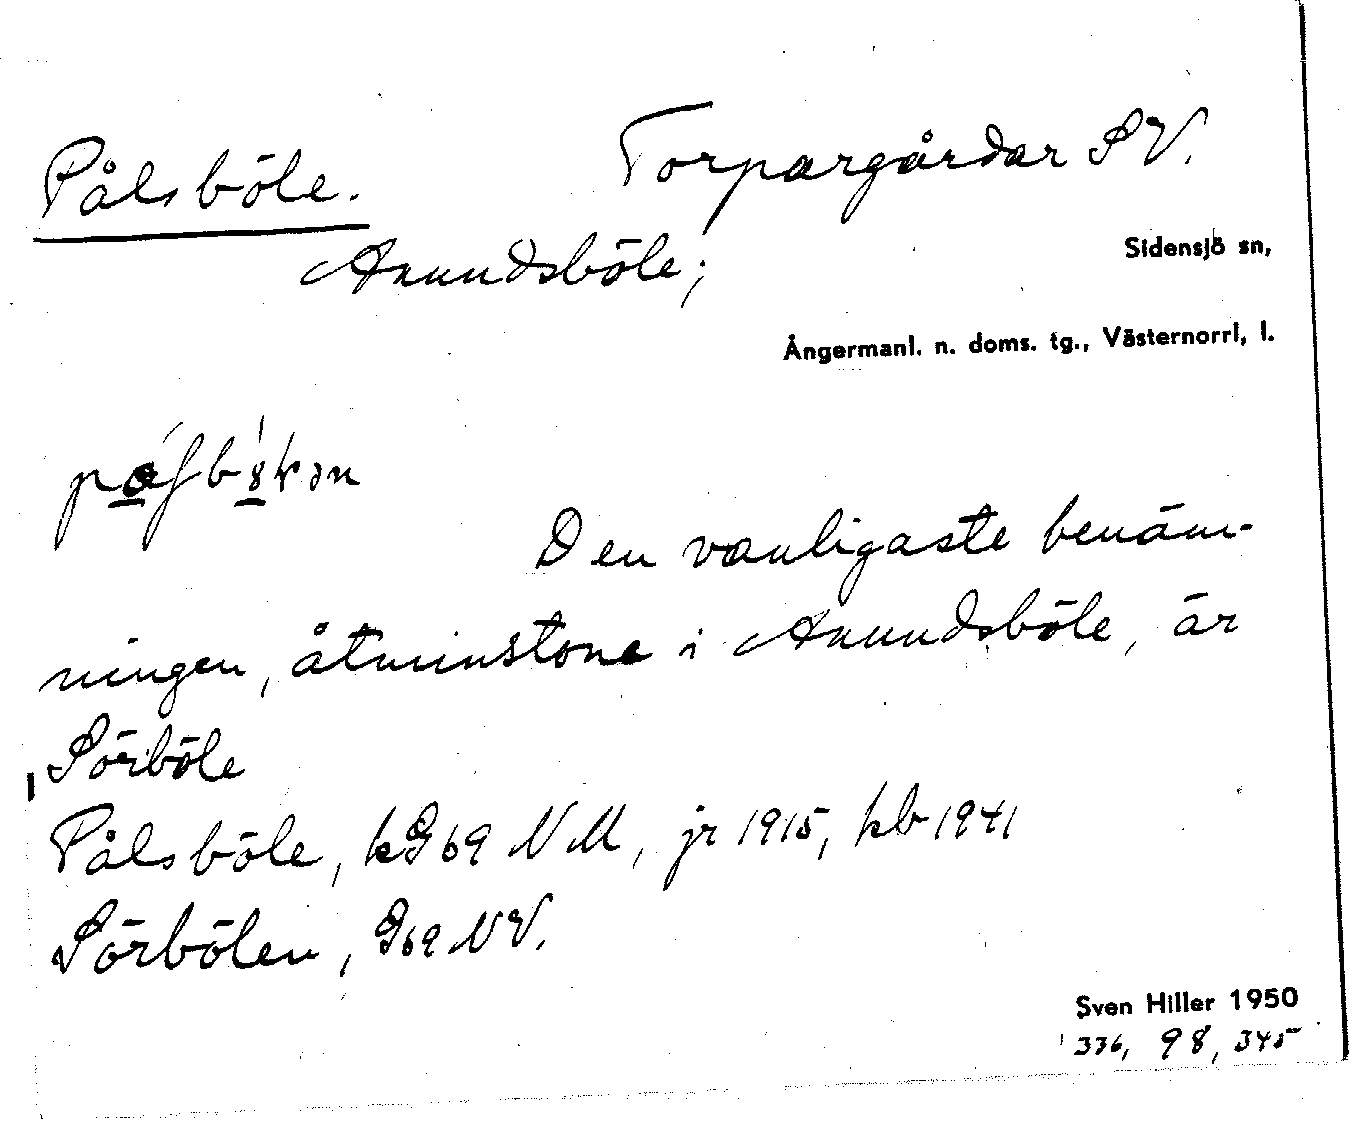 Pålsböle. Torpargårdar SV.
Anundsböle;
Sidensjö sn,
Ångermanl. n. doms. tg., Västernorrl, l.
Den vanligaste benäm-
ningen, åtminstone i Anundsböle, är
Sörböle
Pålsböle, kG69 NM, jr 1915, kb 1941
Sörbölen, G69 NV.
Sven Hiller 1950
336, 98, 345